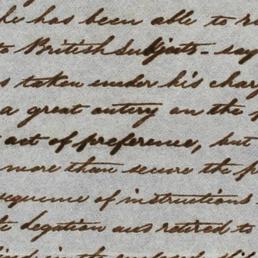 he has been able to
British Subjects - say
taken under his char
a great outcry on the
act of preference, but
more than secure the p
sequence of instructions
legation and retired to